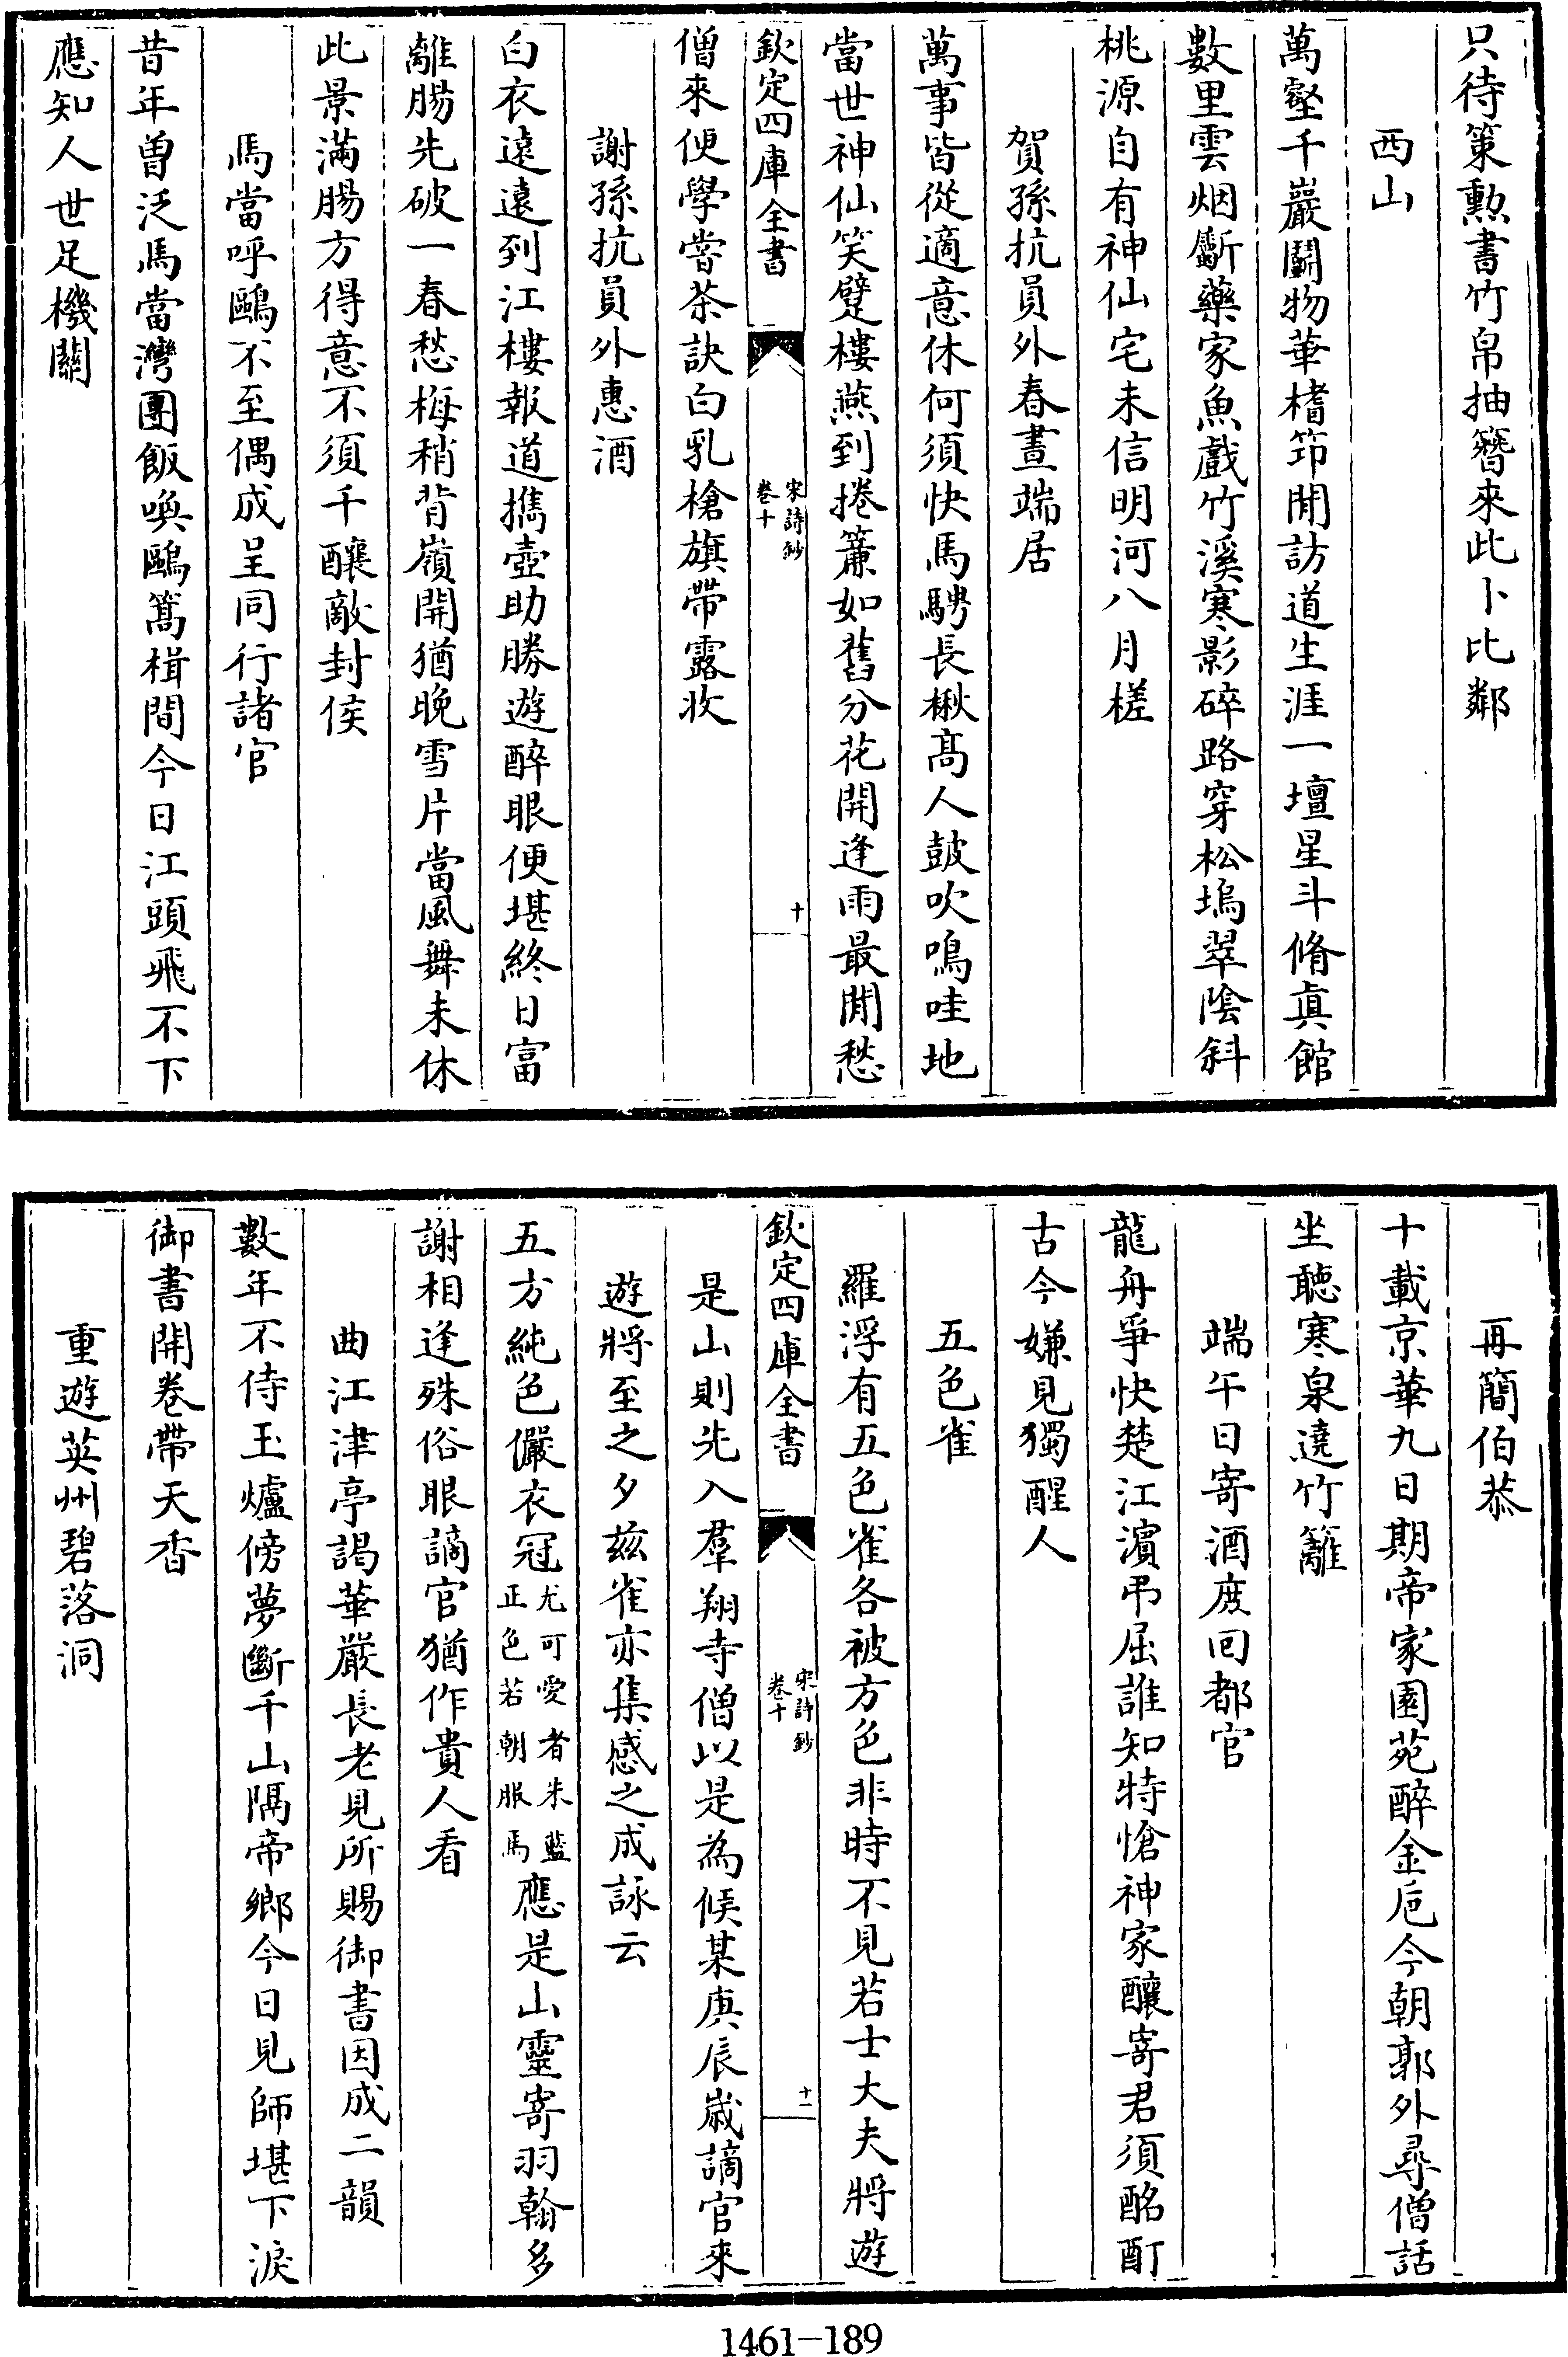 只待策勲書竹帛抽簪來此卜比鄰
西山
萬壑千巖鬭物華榰笻閒訪道生涯一壇星斗脩真館
數里雲烟斸藥家魚戲竹溪寒影碎路穿松塢翠陰斜
桃源自有神仙宅未信明河八月槎
賀孫抗員外春晝端居
萬事皆從適意休何須快馬騁長楸髙人鼓吹鳴哇地
當世神仙笑躄樓燕到捲簾如舊分花開逢雨最閒愁
欽定四庫全書
宋詩鈔
卷十
十
僧來便學嘗茶訣白乳槍旗帶露收
謝孫抗員外惠酒
白衣遠遠到江樓報道攜壺助勝遊醉眼便堪終日富
離腸先破一春愁梅稍背嶺開猶晚雪片當風舞未休
此景滿腸方得意不須千釀敵封侯
馬當呼鷗不至偶成呈同行諸官
昔年曽泛馬當灣團飯喚鷗篙楫間今日江頭飛不下
應知人世足機關
再簡伯恭
十載京華九日期帝家園苑醉金巵今朝郭外尋僧話
坐聽寒泉遶竹籬
端午日寄酒庻回都官
龍舟爭快楚江濵弔屈誰知特愴神家釀寄君須酩酊
古今嫌見獨醒人
五色雀
羅浮有五色雀各被方色非時不見若士大夫將遊
欽定四庫全書
宋詩鈔
卷十
十一
是山則先入羣翔寺僧以是為候某庚辰嵗謫官來
遊將至之夕兹雀亦集感之成詠云
五方純色儼衣冠尤可愛者朱藍正色若朝服馬應是山靈寄羽翰多
謝相逢殊俗眼謫官猶作貴人看
曲江津亭謁華嚴長老見所賜御書因成二韻
數年不侍玉爐傍夢斷千山隔帝鄉今日見師堪下淚
御書開卷帶天香
重遊英州碧落洞
1461-189